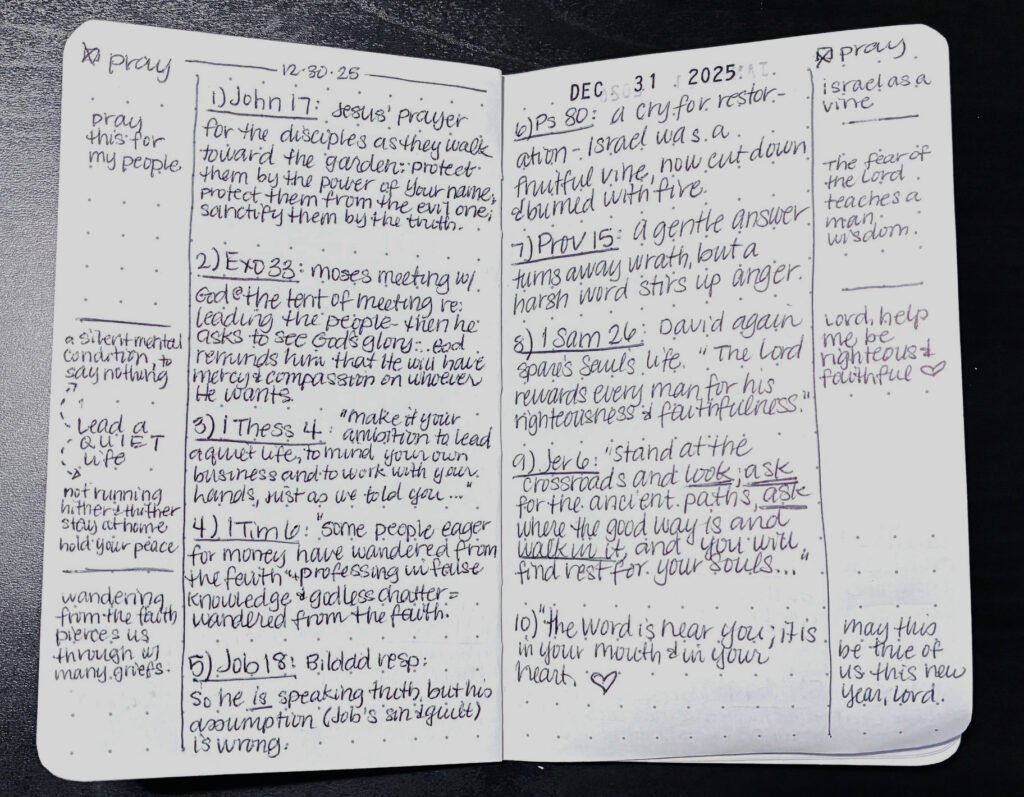 ☒ pray
12·30·25
pray
this for
my people
1) John 17: Jesus' prayer
for the disciples as they walk
toward the garden: protect
them by the power of your name,
protect them from the evil one;
sanctify them by the truth.
2) Exo 33: moses meeting w/
God @ the tent of meeting re:
leading the people - then he
asks to see God's glory... God
reminds him that He will have
mercy & compassion on whoever
He wants.
a silent mental
condition, to
say nothing
Lead a
QUIET
life
not running
hither & thither
stay at home
hold your peace
3) 1 Thess 4: "make it your
ambition to lead
a quiet life, to mind your own
business and to work with your
hands, just as we told you..."
4) 1 Tim 6: "some people eager
for money have wandered from
the faith" + professing in false
knowledge & godless chatter =
wandered from the faith.
wandering
from the faith
pierces us
through w/
many griefs.
5) Job 18: Bildad resp:
So he is speaking truth, but his
assumption (Job's sin & guilt)
is wrong.
DEC 31 2025
☒ pray
6) Ps 80: a cry for restor-
ation - Israel was a
fruitful vine, now cut down
& burned with fire.
israel as a
vine
7) Prov 15: a gentle answer
turns away wrath, but a
harsh word stirs up anger.
The fear of
the Lord
teaches a
man
wisdom.
8) 1 Sam 26: David again
spares Souls life. "The Lord
rewards every man for his
righteousness & faithfulness."
Lord, help
me be
righteous &
faithful ♡
9) Jer 6: "Stand at the
crossroads and look; ask
for the ancient paths, ask
where the good way is and
walk in it, and you will
find rest for your souls..."
10) "The word is near you; it is
in your mouth & in your
heart. ♡
may this
be true of
us this new
year, Lord.